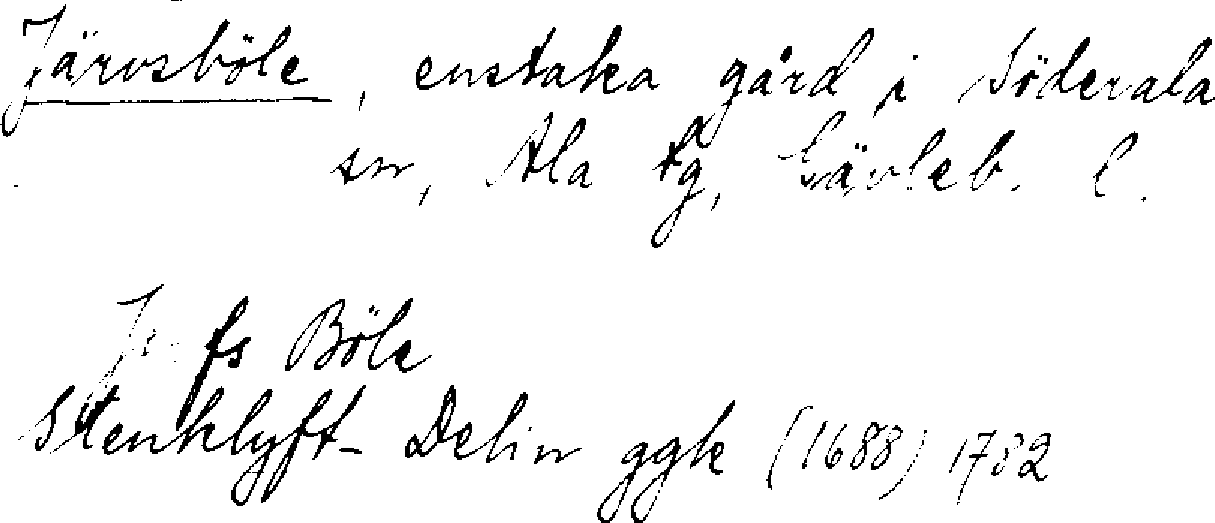 Järvsböle, enstaka gård i Söderala
sn, Ala tg, Gävleb. l.
fs Böle
Stenklyft- Delin ggk (1688) 1782